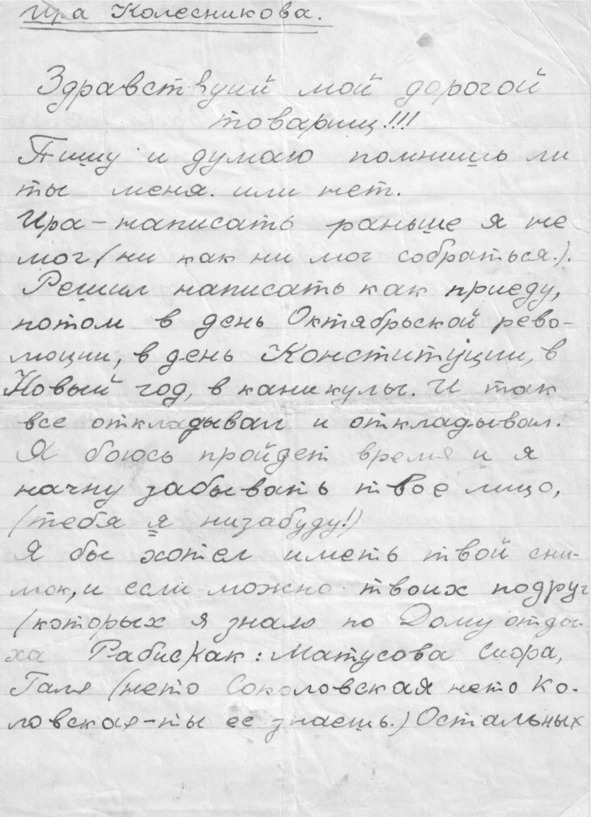 Ира Колесникова.
Здравствуий мой дорогой
товарищ!!!
Пишу и думаю помнишь ли
ты меня. или нет.
Ира - написать раньше я не
мог (ни как ни мог собраться.).
Решил написать как приеду,
потом в день Октябрьской рево-
люции, в день Конституции, в
Новый год, в каникулы. И так
все откладывал и откладывал.
Я боюсь пройдет время и я
начну забывать твое лицо,
(тебя я низабуду!)
Я бы хотел иметь твой сни-
мок, и если можно твоих подруг
(которых я знаю по Дому отды-
ха Рабис) как: Матусова
Галя (нето Соколовская нето Ко-
ловская - ты ее знаешь.) Остальных